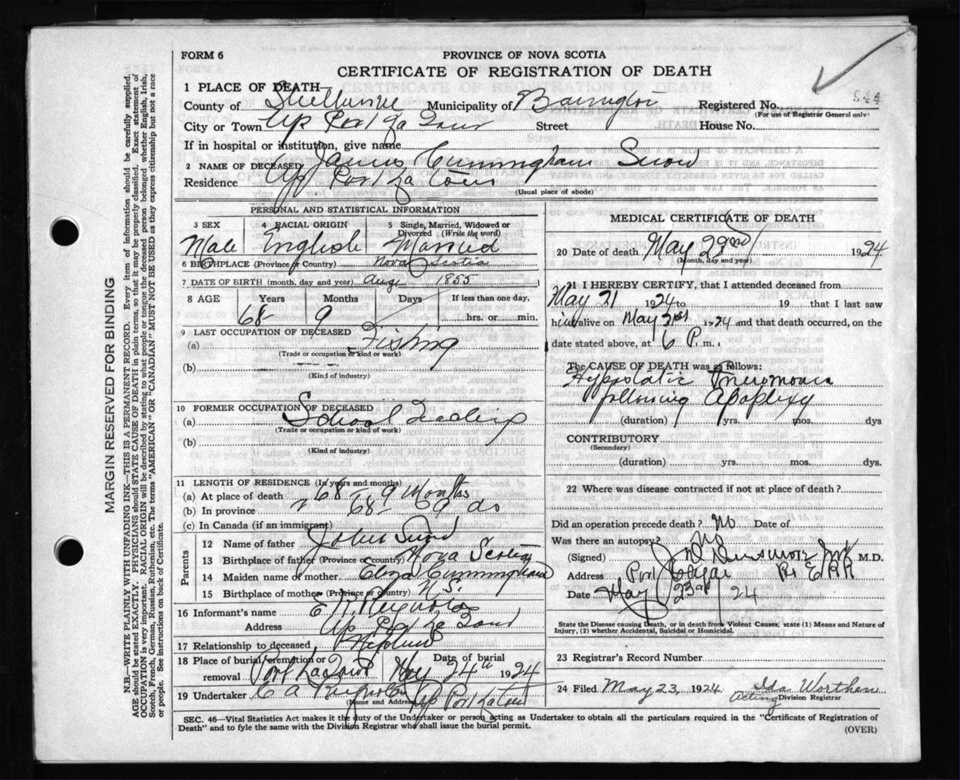 FORM 6
PROVINCE OF NOVA SCOTIA
CERTIFICATE OF REGISTRATION OF DEATH
1 PLACE OF DEATH—
County of Shelburne Municipality of Barrington Registered No. 844
(For use of Registrar General only)
City or Town Up Port La Tour Street House No.
If in hospital or institution, give name
2 NAME OF DECEASED James Cunningham Snow
Residence Up Port La Tour
(Usual place of abode)
PERSONAL AND STATISTICAL INFORMATION
3 SEX Male
4 RACIAL ORIGIN English
5 Single, Married, Widowed or Divorced (Write the word) Married
6 BIRTHPLACE (Province or Country) Nova Scotia
7 DATE OF BIRTH (month, day and year) Aug 1855
8 AGE Years 68 Months 9 Days If less than one day, hrs. or min.
9 LAST OCCUPATION OF DECEASED
(a) Fishing
(Trade or occupation or kind or work)
(b)
(Kind of industry)
10 FORMER OCCUPATION OF DECEASED
(a) School
(Trade or occupation or kind of work)
(b)
(Kind of industry)
11 LENGTH OF RESIDENCE (in years and months)
(a) At place of death 68 - 9 Months
(b) In province " 68 - 9 do
(c) In Canada (if an immigrant)
Parents
12 Name of father John Snow
13 Birthplace of father (Province or Country) Nova Scotia
14 Maiden name of mother Eliza Cunningham
15 Birthplace of mother (Province or Country) N.S.
16 Informant's name E Reynolds
Address Up Port La Tour
17 Relationship to deceased
18 Place of burial, cremation or removal Port La Tour Date of burial May 24th 1924
19 Undertaker C A Up Port La Tour
(Name and Address)
MEDICAL CERTIFICATE OF DEATH
20 Date of death May 23rd 1924
(Month, day and year)
21 I HEREBY CERTIFY, that I attended deceased from
May 21 1924 to 19 that I last saw
him alive on May 1924 and that death occurred, on the
date stated above, at 6 P. m.
The CAUSE OF DEATH was as follows:
Hypostatic Pneumonia
following Apoplexy
(duration) yrs. mos. dys
CONTRIBUTORY
(Secondary)
(duration) yrs. mos. dys
22 Where was disease contracted if not at place of death?
Did an operation precede death? No Date of
Was there an autopsy? No
(Signed) M.D.
Address Port
Date May 23rd 24
State the Disease causing Death, or in death from Violent Causes, state (1) Means and Nature of Injury, (2) whether Accidental, Suicidal or Homicidal.
23 Registrar's Record Number
24 Filed May 23, 1924 Ida Worthen
Acting Division Registrar
SEC. 46—Vital Statistics Act makes it the duty of the Undertaker or person acting as Undertaker to obtain all the particulars required in the "Certificate of Registration of
Death" and to fyle the same with the Division Registrar who shall issue the burial permit.
(OVER)
MARGIN RESERVED FOR BINDING
N.B.—WRITE PLAINLY WITH UNFADING INK—THIS IS A PERMANENT RECORD. Every item of information should be carefully supplied.
AGE should be stated EXACTLY. PHYSICIANS should STATE CAUSE OF DEATH in plain terms, so that it may be properly classified. Exact statement of
OCCUPATION is very important. RACIAL ORIGIN will be described by stating to what people or tongue the deceased person belonged whether English, Irish,
Scotch, French, German, Russian, Ruthenian, etc. The terms "AMERICAN" or "CANADIAN" MUST NOT BE USED as they express citizenship but not a race
or people. See instructions on back of Certificate.